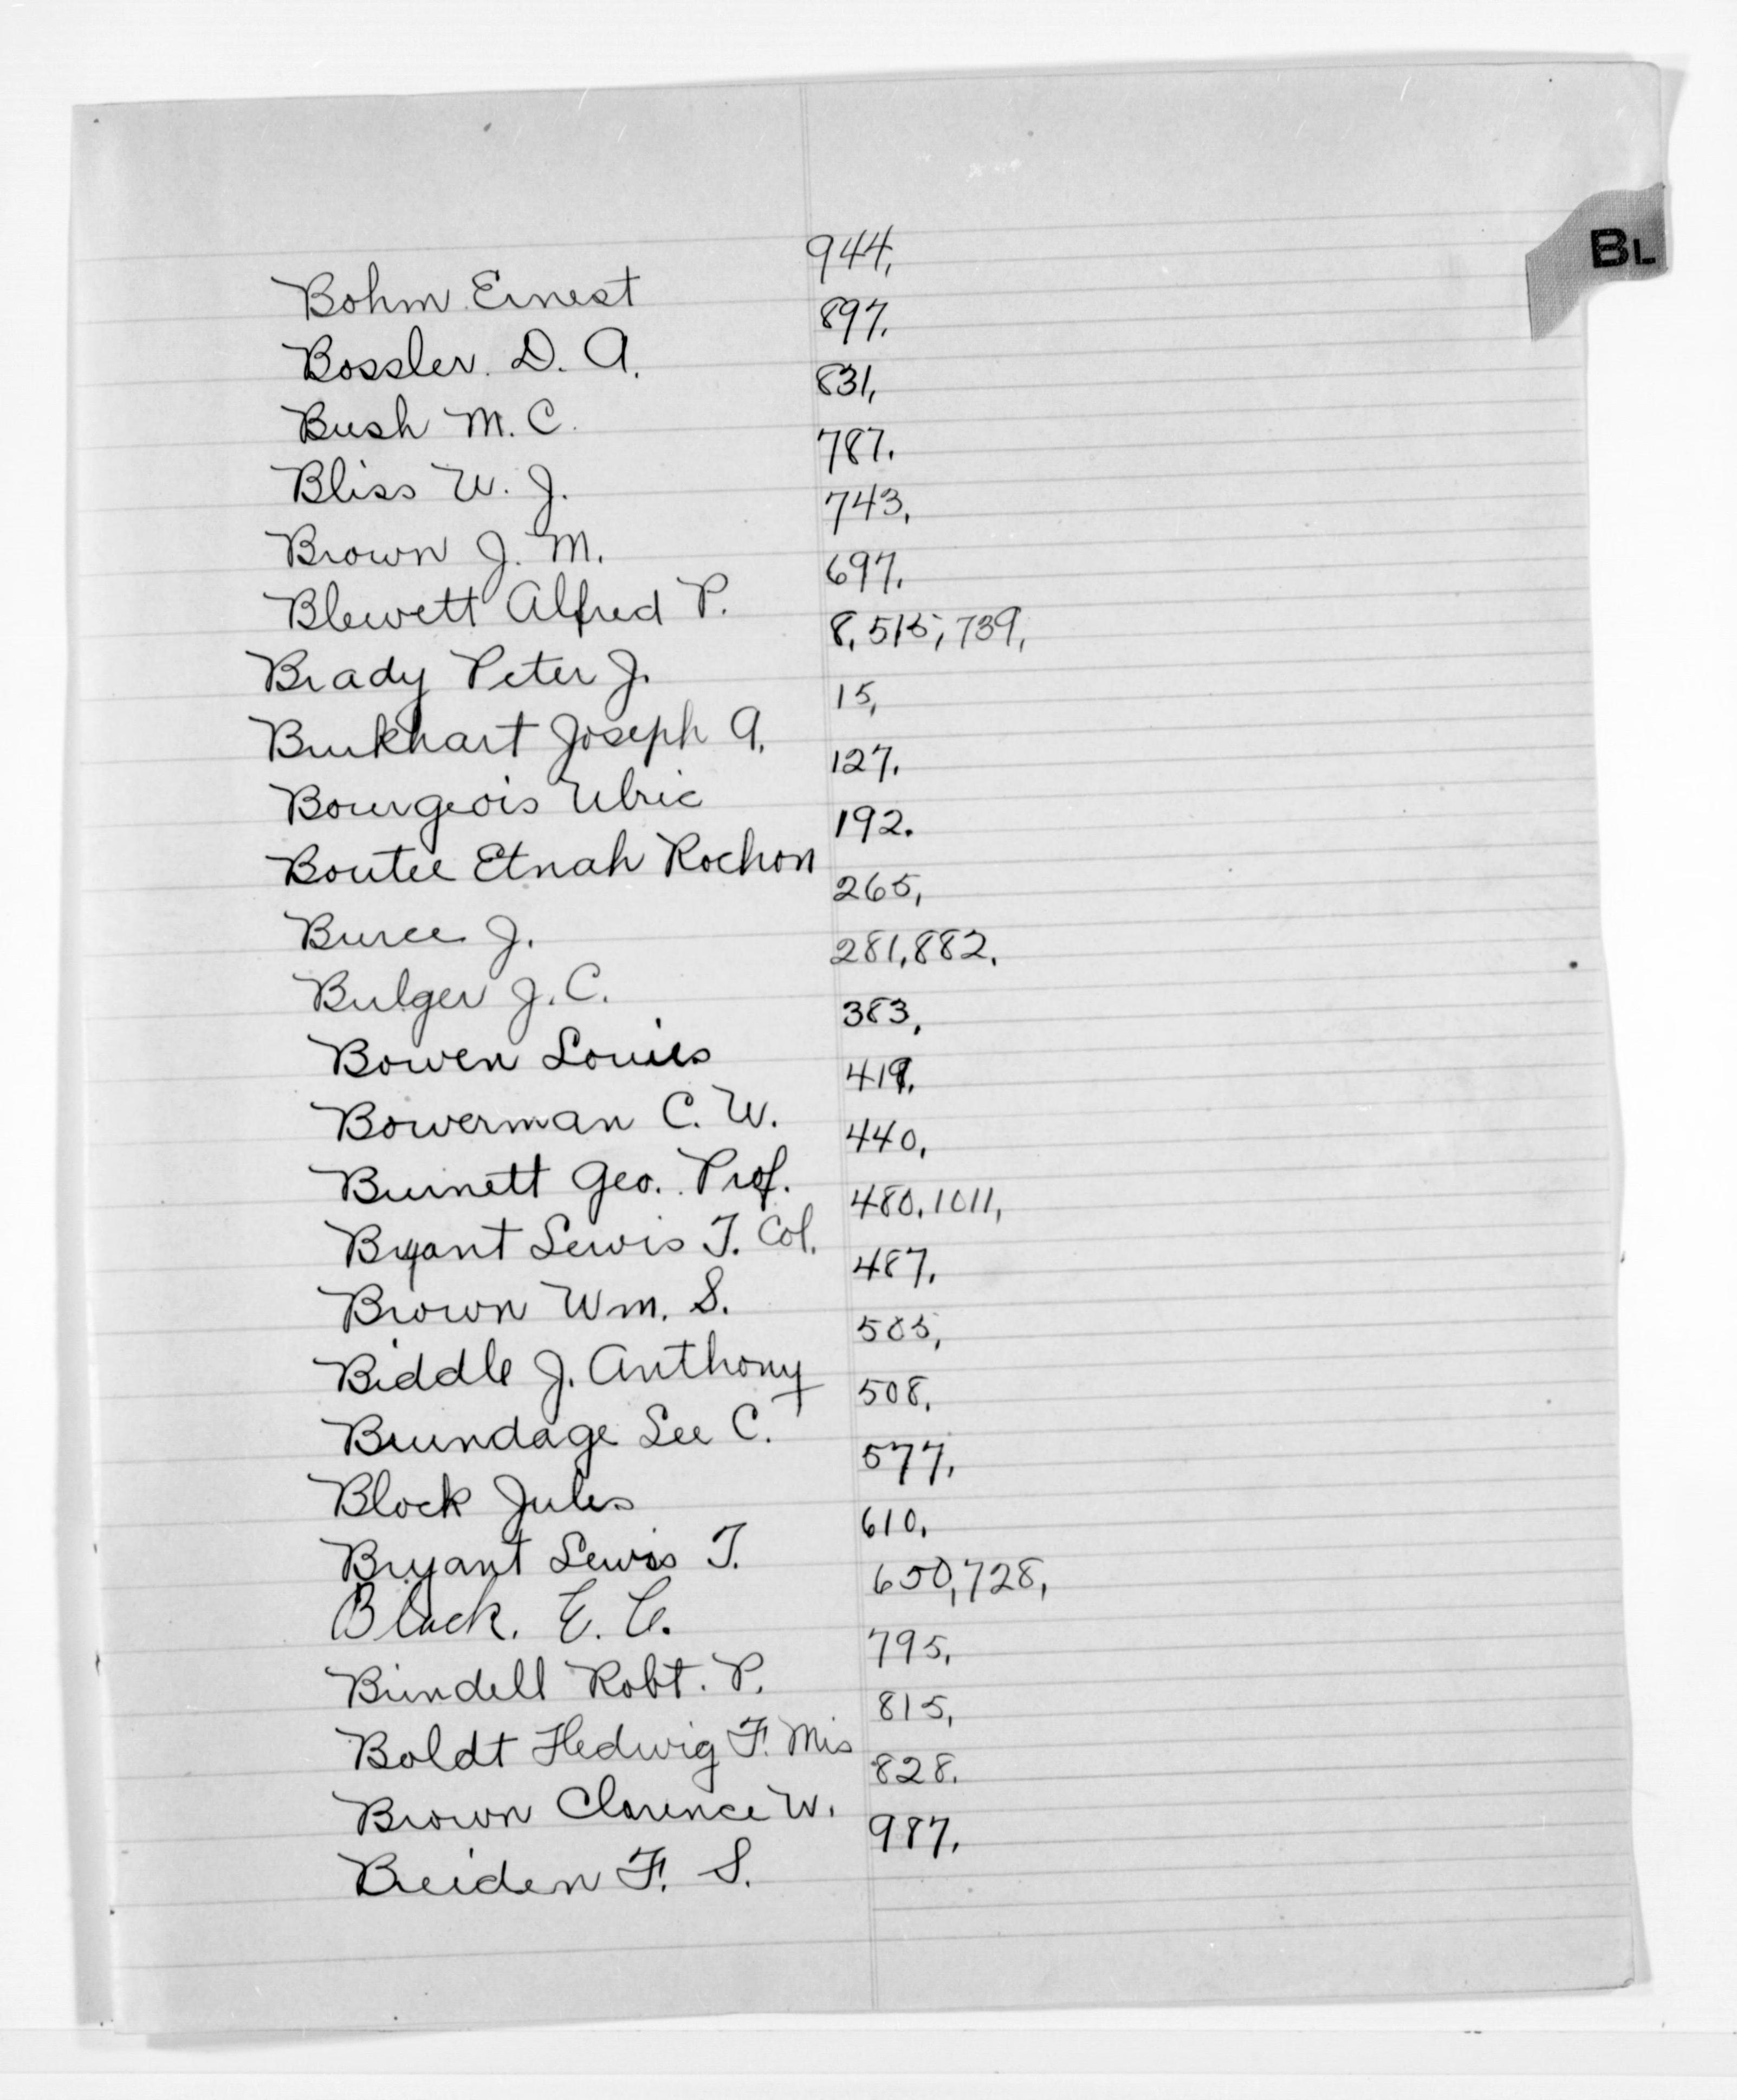 BL
Bohm Ernest 944,
Bossler. D. A. 897.
Bush M. C. 831,
Bliss W. J. 787.
Brown J. M. 743,
Blewett Alfred P. 697.
Brady Peter J. 8, 515, 739,
Burkhart Joseph A. 15,
Bourgeois Ulric 127.
Boutee Etnah Rochon 192.
Buree J. 265,
Bulger J. C. 281, 882.
Bowen Louis 383,
Bowerman C. W. 419.
Burnett Geo. Prof. 440,
Bryant Lewis T. Col. 480, 1011,
Brown Wm. S. 487.
Biddle J. Anthony 505,
Brundage Lee C. 508,
Block Jules 577,
Bryant Lewis T. 610,
Black. E. C. 650, 728,
Brindell Robt. P. 795,
Boldt Hedwig F. Mrs 815,
Brown Clarence W. 828.
Breiden F. S. 987,